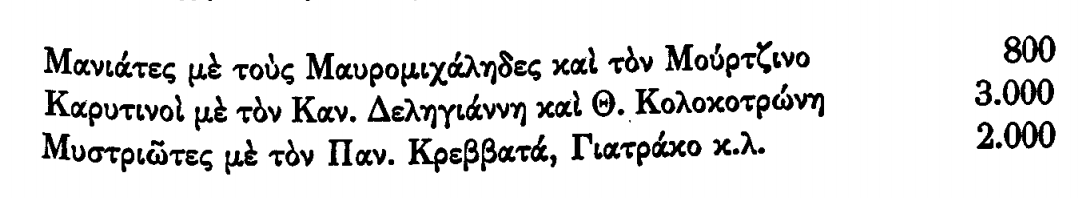 Μανιάτες μὲ τοὺς Μαυρομιχάληδες καὶ τὸν Μούρτζινο 800
Καρυτινοὶ μὲ τὸν Καν. Δεληγιάννη καὶ Θ. Κολοκοτρώνη 3.000
Μυστριῶτες μὲ τὸν Παν. Κρεββατά, Γιατράκο κ.λ. 2.000